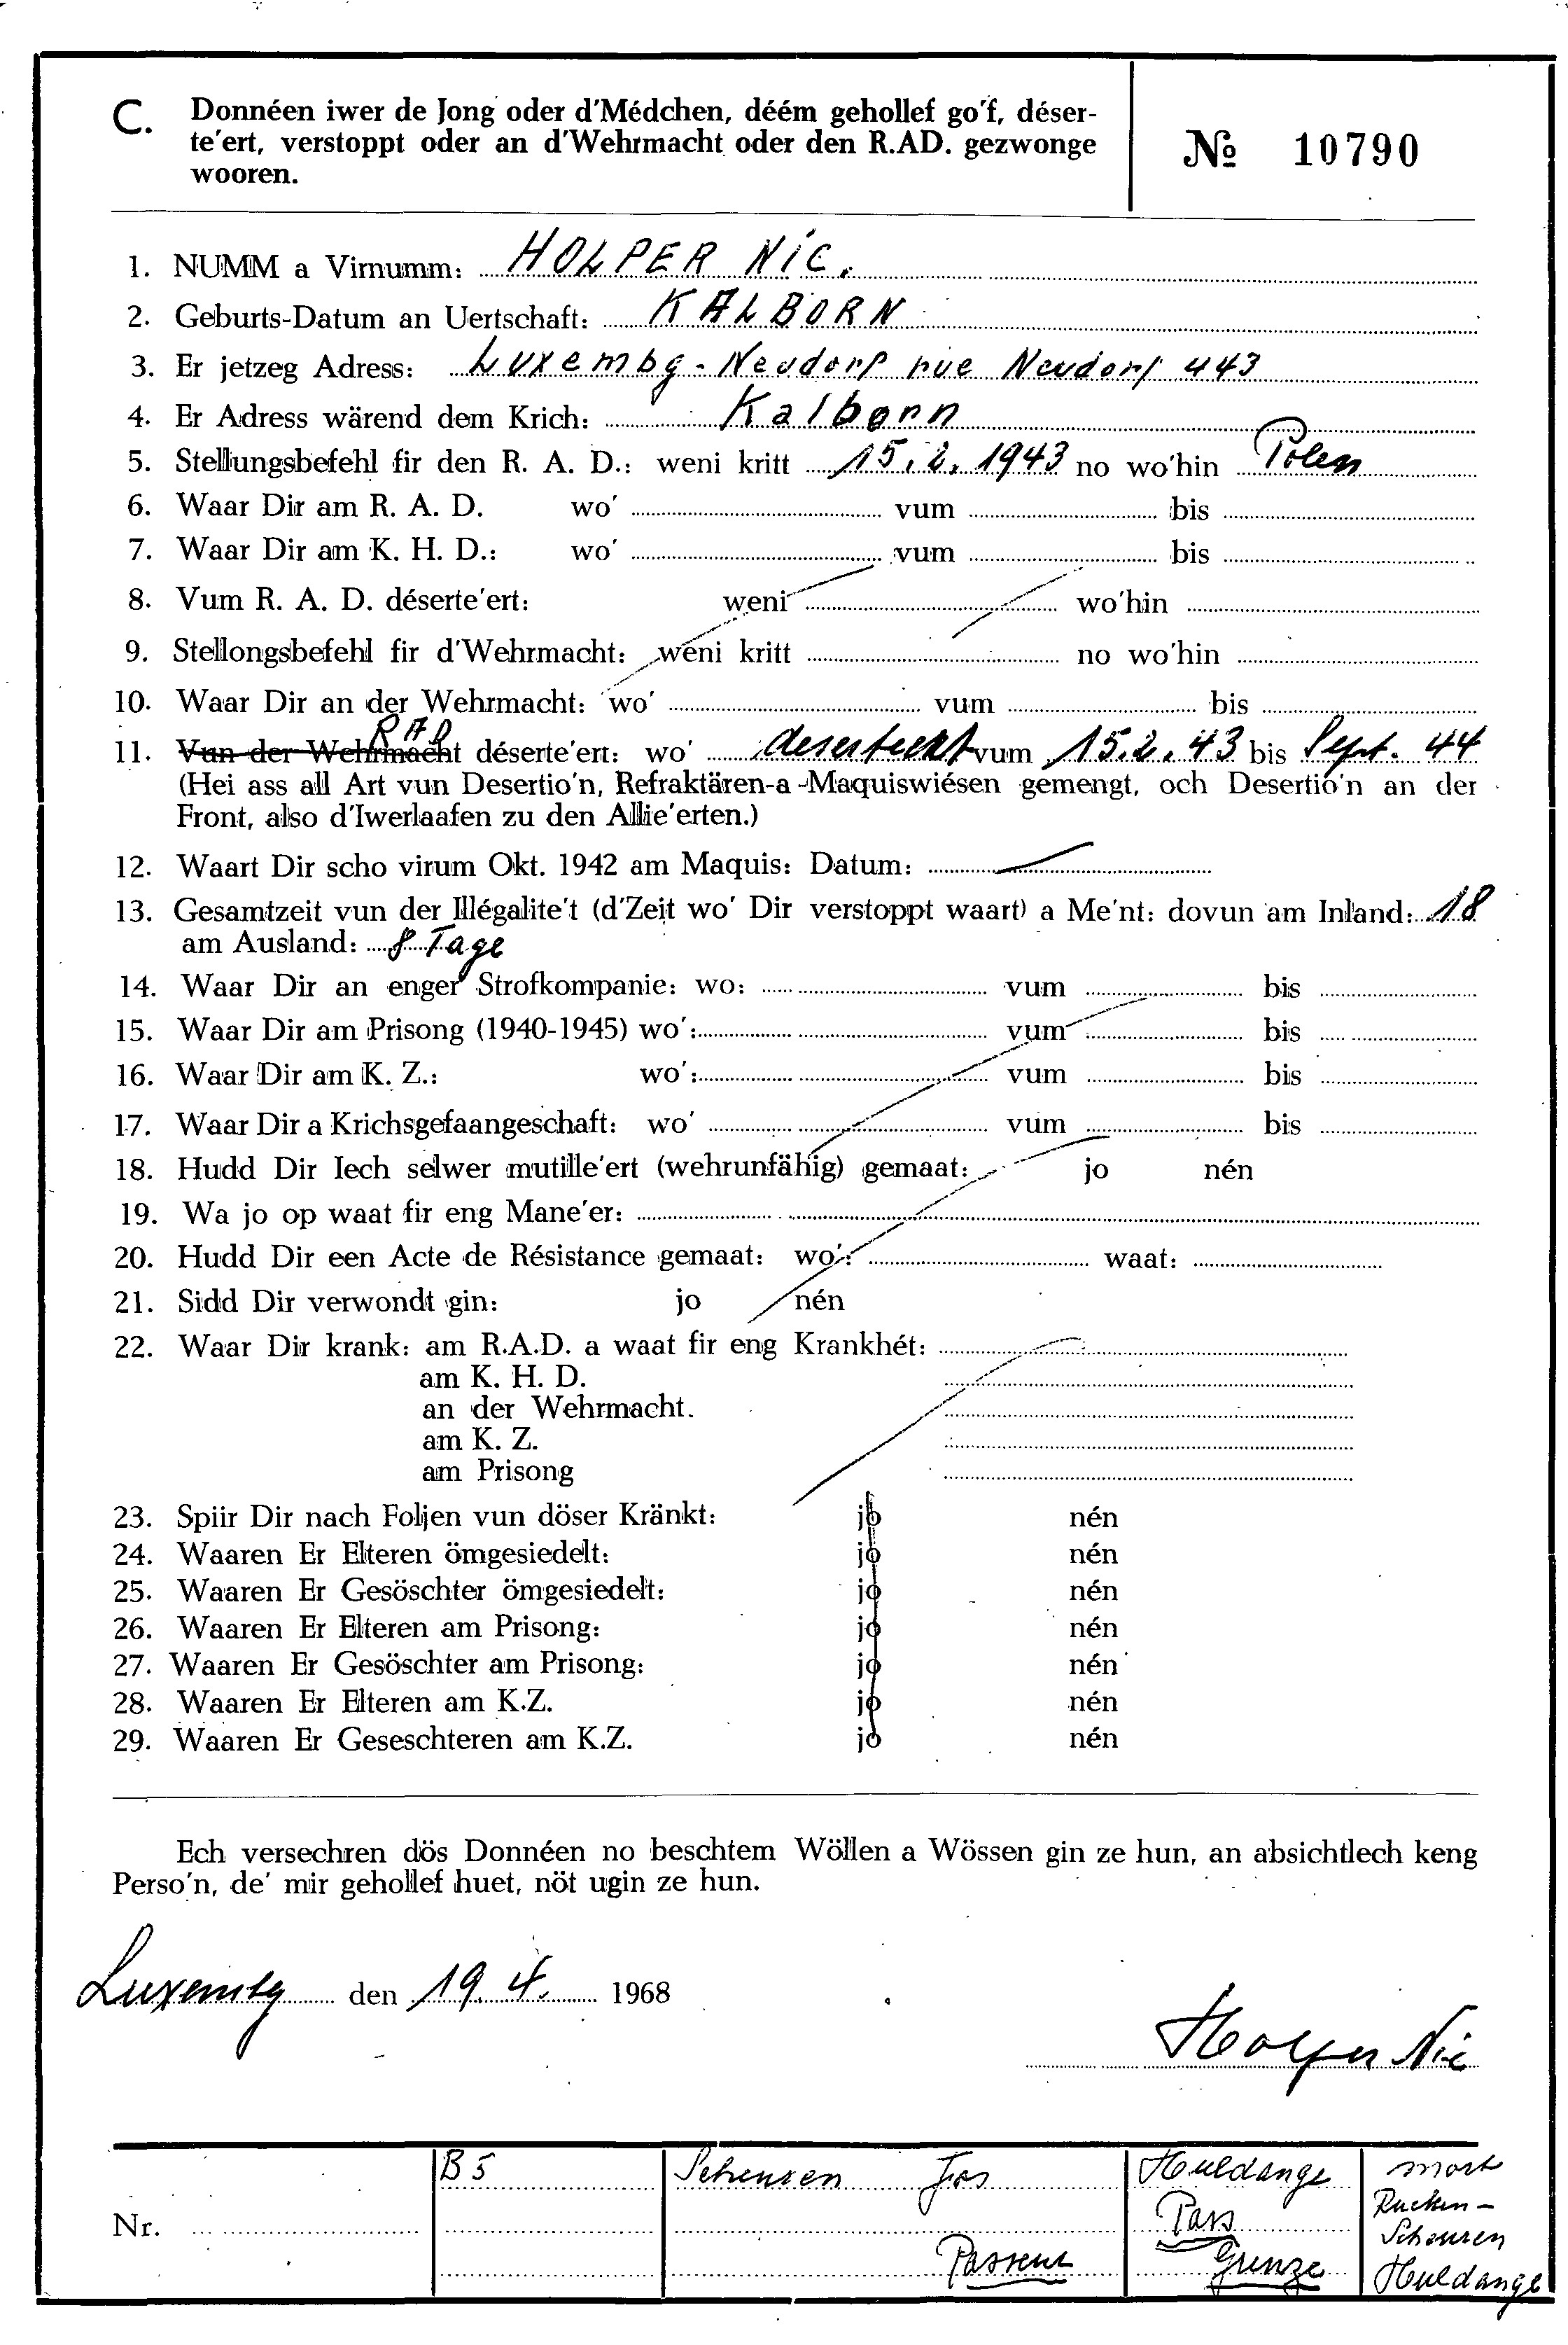 C. Donnéen iwer de Jong oder d'Médchen, déém gehollef go'f, déser-
te'ert, verstoppt oder an d'Wehrmacht oder den R.AD. gezwonge
wooren.
№ 10790
1. NUMM a Virnumm: HOLPER NIC.
2. Geburts-Datum an Uertschaft: KALBORN
3. Er jetzeg Adress: Luxembg - Neudorf rue Neudorf 443
4. Er Adress wärend dem Krich: Kalborn
5. Stellungsbefehl fir den R. A. D.: weni kritt 15.2.1943 no wo'hin Polen
6. Waar Dir am R. A. D. wo' vum bis
7. Waar Dir am K. H. D.: wo' vum bis
8. Vum R. A. D. déserte'ert: weni wo'hin
9. Stellongsbefehl fir d'Wehrmacht: weni kritt no wo'hin
10. Waar Dir an der Wehrmacht: wo' vum bis
RAD
11. Vun der Wehrmacht déserte'ert: wo' vum 15.2.43 bis Sept. 44
(Hei ass all Art vun Desertio'n, Refraktären-a-Maquiswiésen gemengt, och Desertio'n an der
Front, also d'Iwerlaafen zu den Allie'erten.)
12. Waart Dir scho virum Okt. 1942 am Maquis: Datum:
13. Gesamtzeit vun der Illégalite't (d'Zeit wo' Dir verstoppt waart) a Me'nt: dovun am Inland: 18
am Ausland: 8 Tage
14. Waar Dir an enger Strofkompanie: wo: vum bis
15. Waar Dir am Prisong (1940-1945) wo': vum bis
16. Waar Dir am K. Z.: wo': vum bis
17. Waar Dir a Krichsgefaangeschaft: wo' vum bis
18. Hudd Dir Iech selwer mutille'ert (wehrunfähig) gemaat: jo nén
19. Wa jo op waat fir eng Mane'er:
20. Hudd Dir een Acte de Résistance gemaat: wo': waat:
21. Sidd Dir verwondt gin: jo nén
22. Waar Dir krank: am R.A.D. a waat fir eng Krankhét:
am K. H. D.
an der Wehrmacht.
am K. Z.
am Prisong
23. Spiir Dir nach Foljen vun döser Kränkt: jo nén
24. Waaren Er Elteren ömgesiedelt: jo nén
25. Waaren Er Gesöschter ömgesiedelt: jo nén
26. Waaren Er Elteren am Prisong: jo nén
27. Waaren Er Gesöschter am Prisong: jo nén
28. Waaren Er Elteren am K.Z. jo nén
29. Waaren Er Geseschteren am K.Z. jo nén
Ech versechren dös Donnéen no beschtem Wöllen a Wössen gin ze hun, an absichtlech keng
Perso'n, de' mir gehollef huet, nöt ugin ze hun.
Luxembg den 19.4. 1968
Holper Nic
Nr. B5 Jos Huldange mort
Pass
Passeur Grenze
Scheuren
Huldange